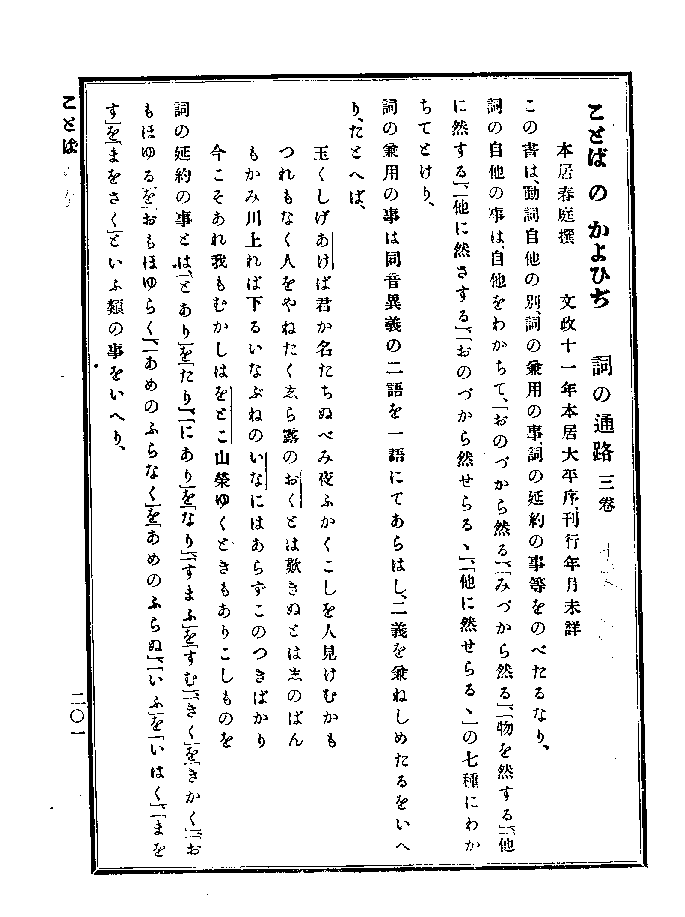 ことばのかよひぢ　詞の通路　三卷
本居春庭撰　文政十一年本居大平序、刊行年月未詳
この書は、動詞自他の別、詞の兼用の事、詞の延約の事等をのべたるなり、
詞の自他の事は、自他をわかちて、「おのづから然る」「みづから然る」「物を然する」「他
に然する」「他に然さする」「おのづから然せらるゝ」「他に然せらるゝ」の七種にわか
ちてとけり、
詞の兼用の事は同音異義の二語を一語にてあらはし、二義を兼ねしめたるをいへ
り、たとへば、
玉くしげあけば君か名たちぬべみ夜ふかくこしを人見けむかも
つれもなく人をやねたくゑら露のおくとは歎きぬとは志のばん
もかみ川上れば下るいなぶねのいなにはあらずこのつきばかり
今こそあれ我もむかしはをとこ山榮ゆくときもありこしものを
詞の延約の事とは、「とあり」を「たり」「にあり」を「なり」「すまふ」を「すむ」「きく」を「きかく」「お
もほゆる」を「おもほゆらく」「あめのふらなく」を「あめのふらぬ」「いふ」を「いはく」「まを
す」を「まをさく」といふ類の事をいへり、
ことば
二〇一